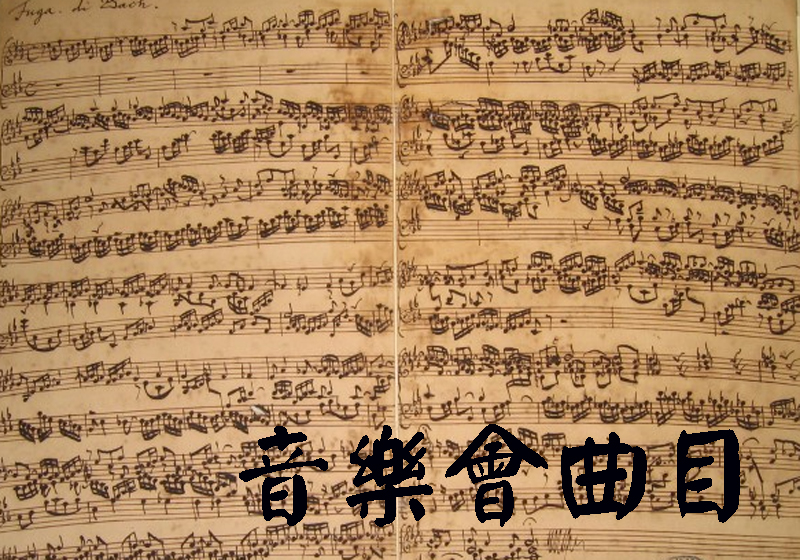 Fuga. di Bach.
音樂會曲目